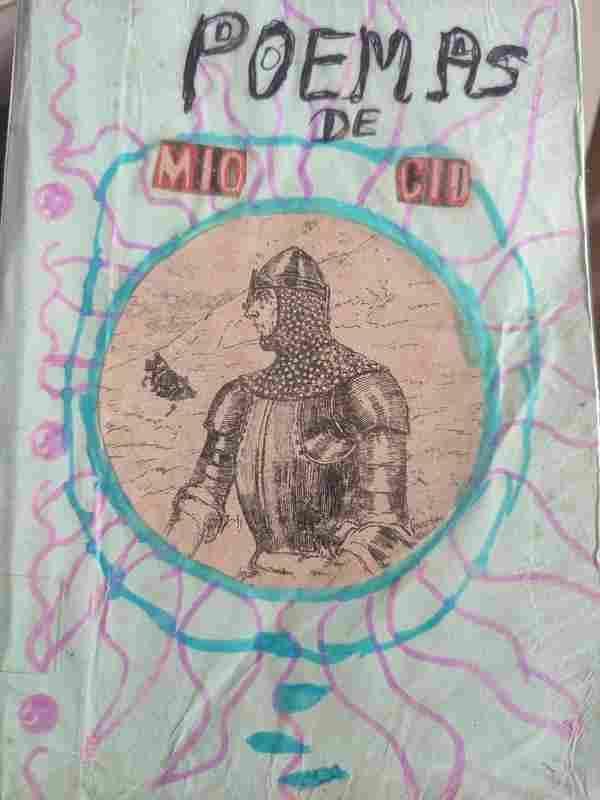 POEMAS
DE
MIO CID